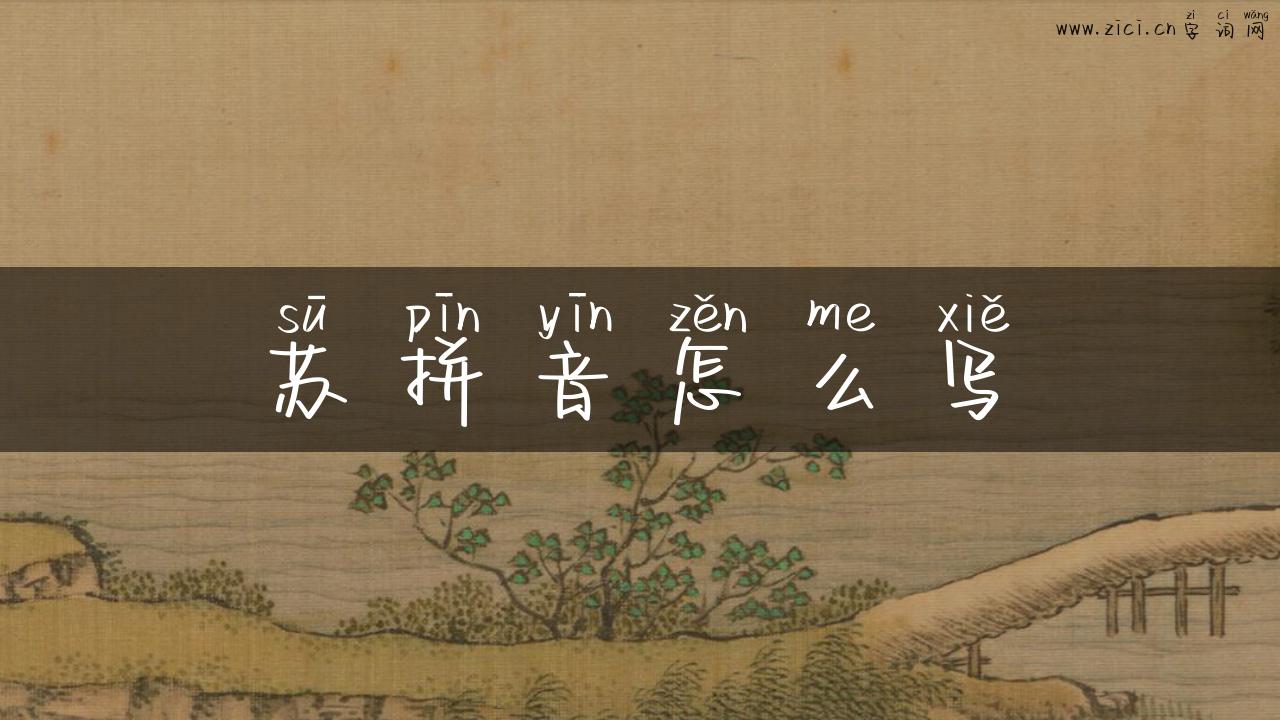 zì cí wǎng
www.zici.cn 字 词 网
sū pīn yīn zěn me xiě
苏 拼 音 怎 么 写